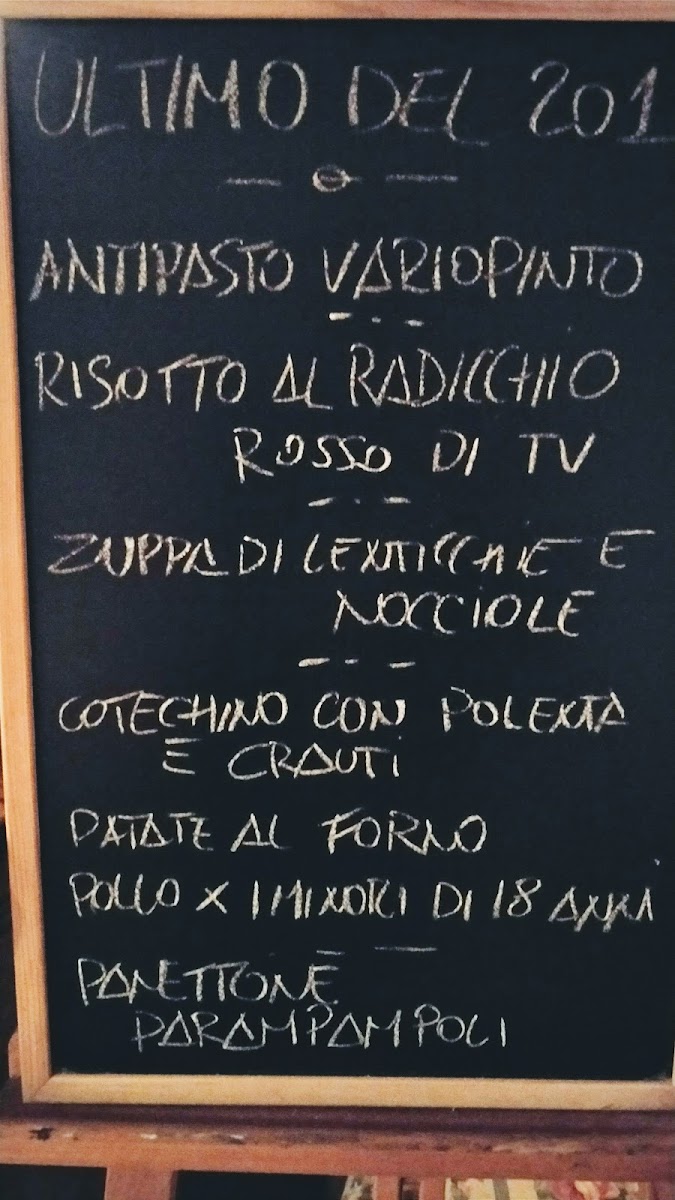 ULTIMO DEL 201
ANTIPASTO VARIOPINTO
RISOTTO AL RADICCHIO
ROSSO DI TV
ZUPPA DI LENTICCHIE E
NOCCIOLE
COTECHINO CON POLENTA
E CRAUTI
PATATE AL FORNO
POLLO X I MINORI DI 18 ANNI
PANETTONE
PARAMPAMPOLI